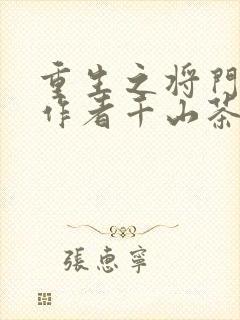 重生之将門
作者千山茶
張惠寧